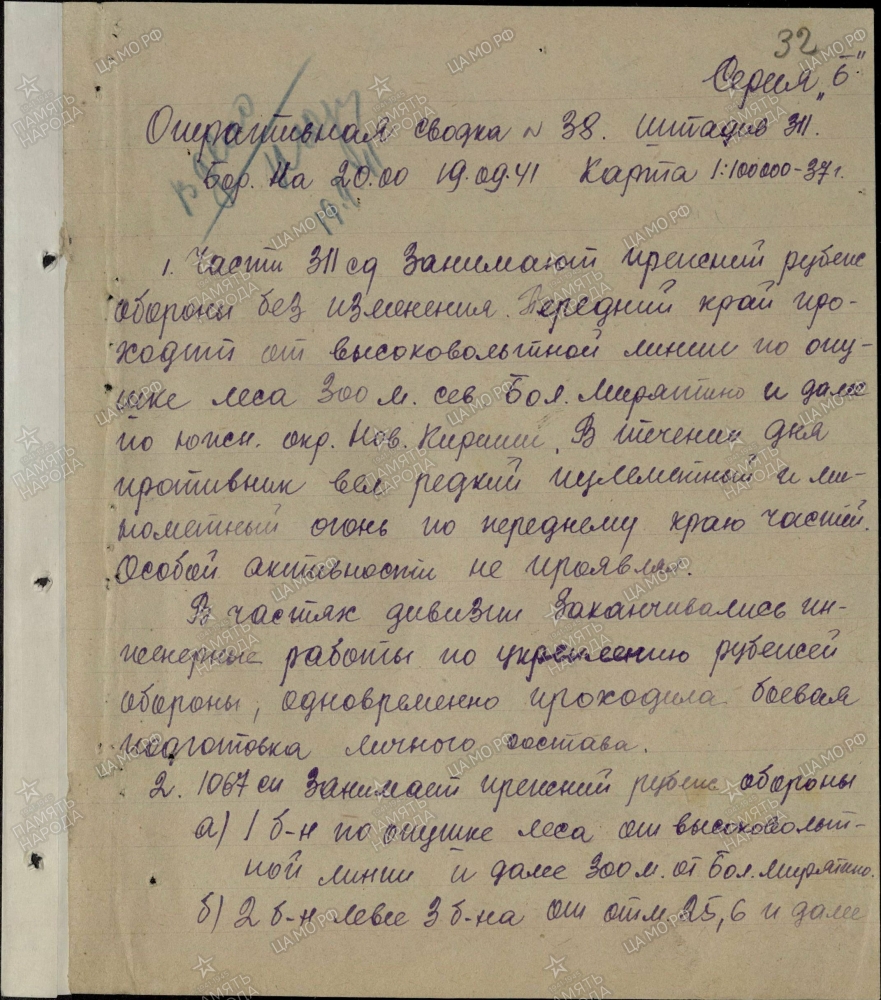 32
Серия „Б"
Оперативная сводка № 38. штадив 311.
Бор. На 20.00 19.09.41 Карта 1:100000-37г.
1. Части 311 сд занимают прежний рубеж
обороны без изменения. Передний край про-
ходит от высоковольтной линии по опу-
шке леса 300 м. сев. Бол. Мирятино и далее
по южн. окр. Нов. Кириши. В течении дня
противник вел редкий пулеметный и ми-
нометный огонь по переднему краю частей.
Особой активности не проявлял.
В частях дивизии заканчивались ин-
женерные работы по укреплению рубежей
обороны, одновременно проходила боевая
подготовка личного состава.
2. 1067 сп занимает прежний рубеж обороны
а) 1 б-н по опушке леса от высоковольт-
ной линии и далее 300 м. от Бол. Мирятино.
б) 2 б-н левее 3 б-на от отм. 25,6 и далее